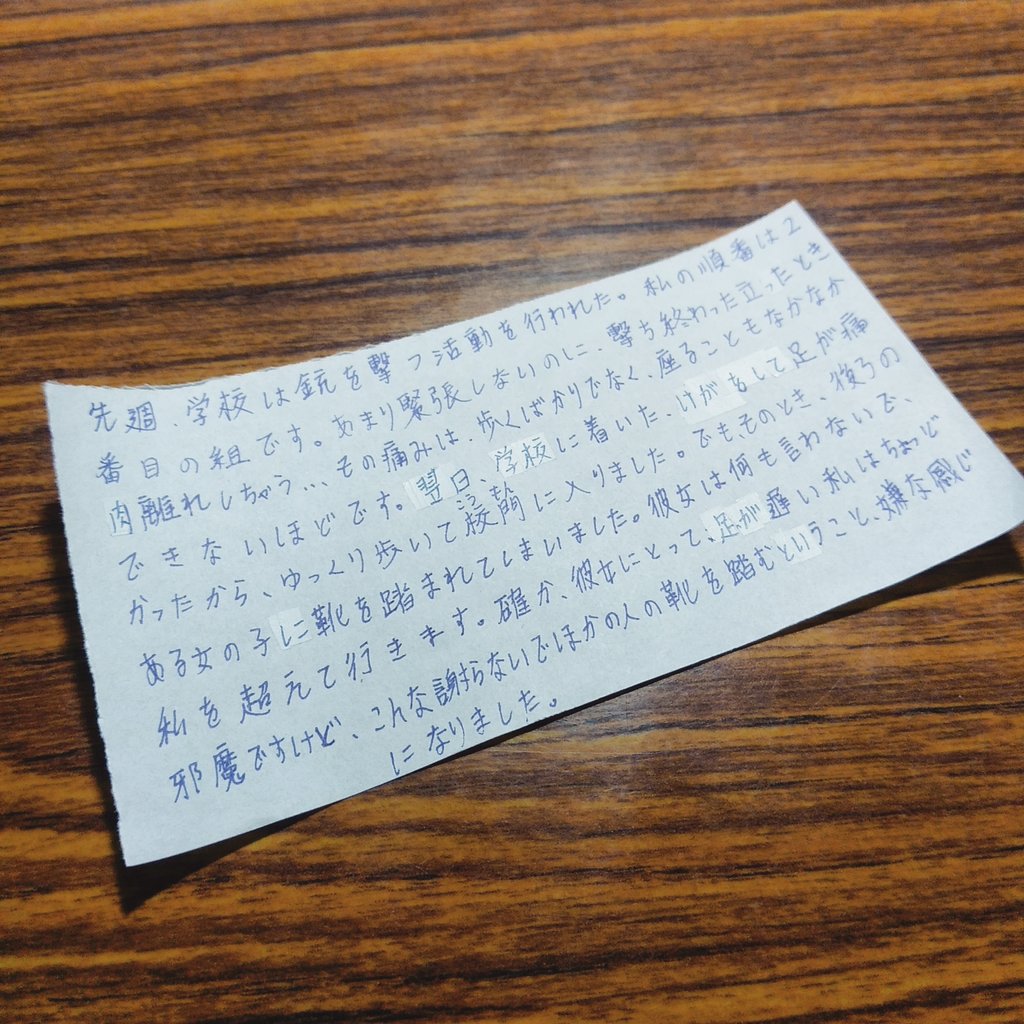 先週、学校は銃を撃つ活動を行われた。私の順番は2
番目の組です。あまり緊張しないのに、撃ち終わった立ったとき
肉離れしちゃう…その痛みは、歩くばかりでなく、座ることもなかなか
できないほどです。翌日、学校に着いた、けがをして足が痛
かったから、ゆっくり歩いて校門に入りました。でも、そのとき、後ろの
ある女の子に靴を踏まれてしまいました。彼女は何も言わないで、
私を超えて行きます。確か、彼女にとって、足が遅い私はちょっど
邪魔ですけど、こんな謝らないでほかの人の靴を踏むということ、嫌な感じ
になりました。